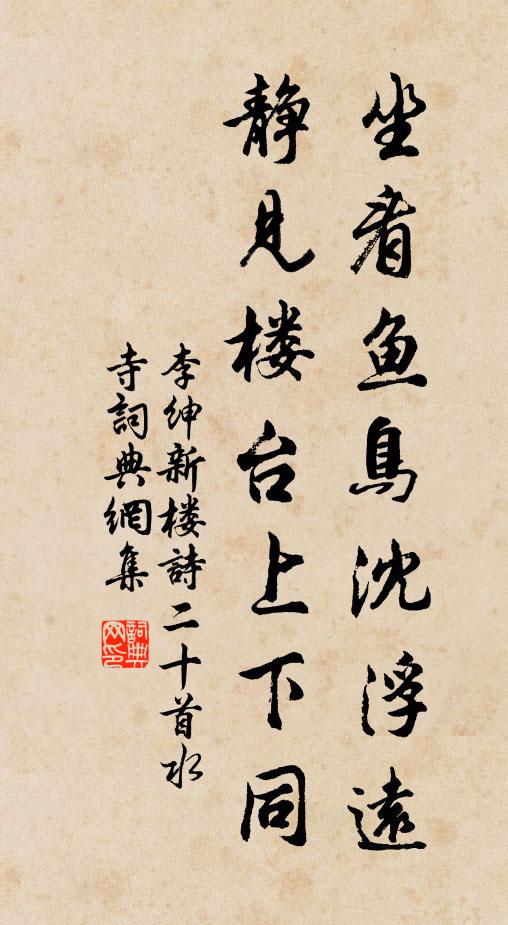 坐看鱼鳥沈浮遠
静見楼台上下同
李紳新楼詩二十首水
寺詞典網集
詞典
网印